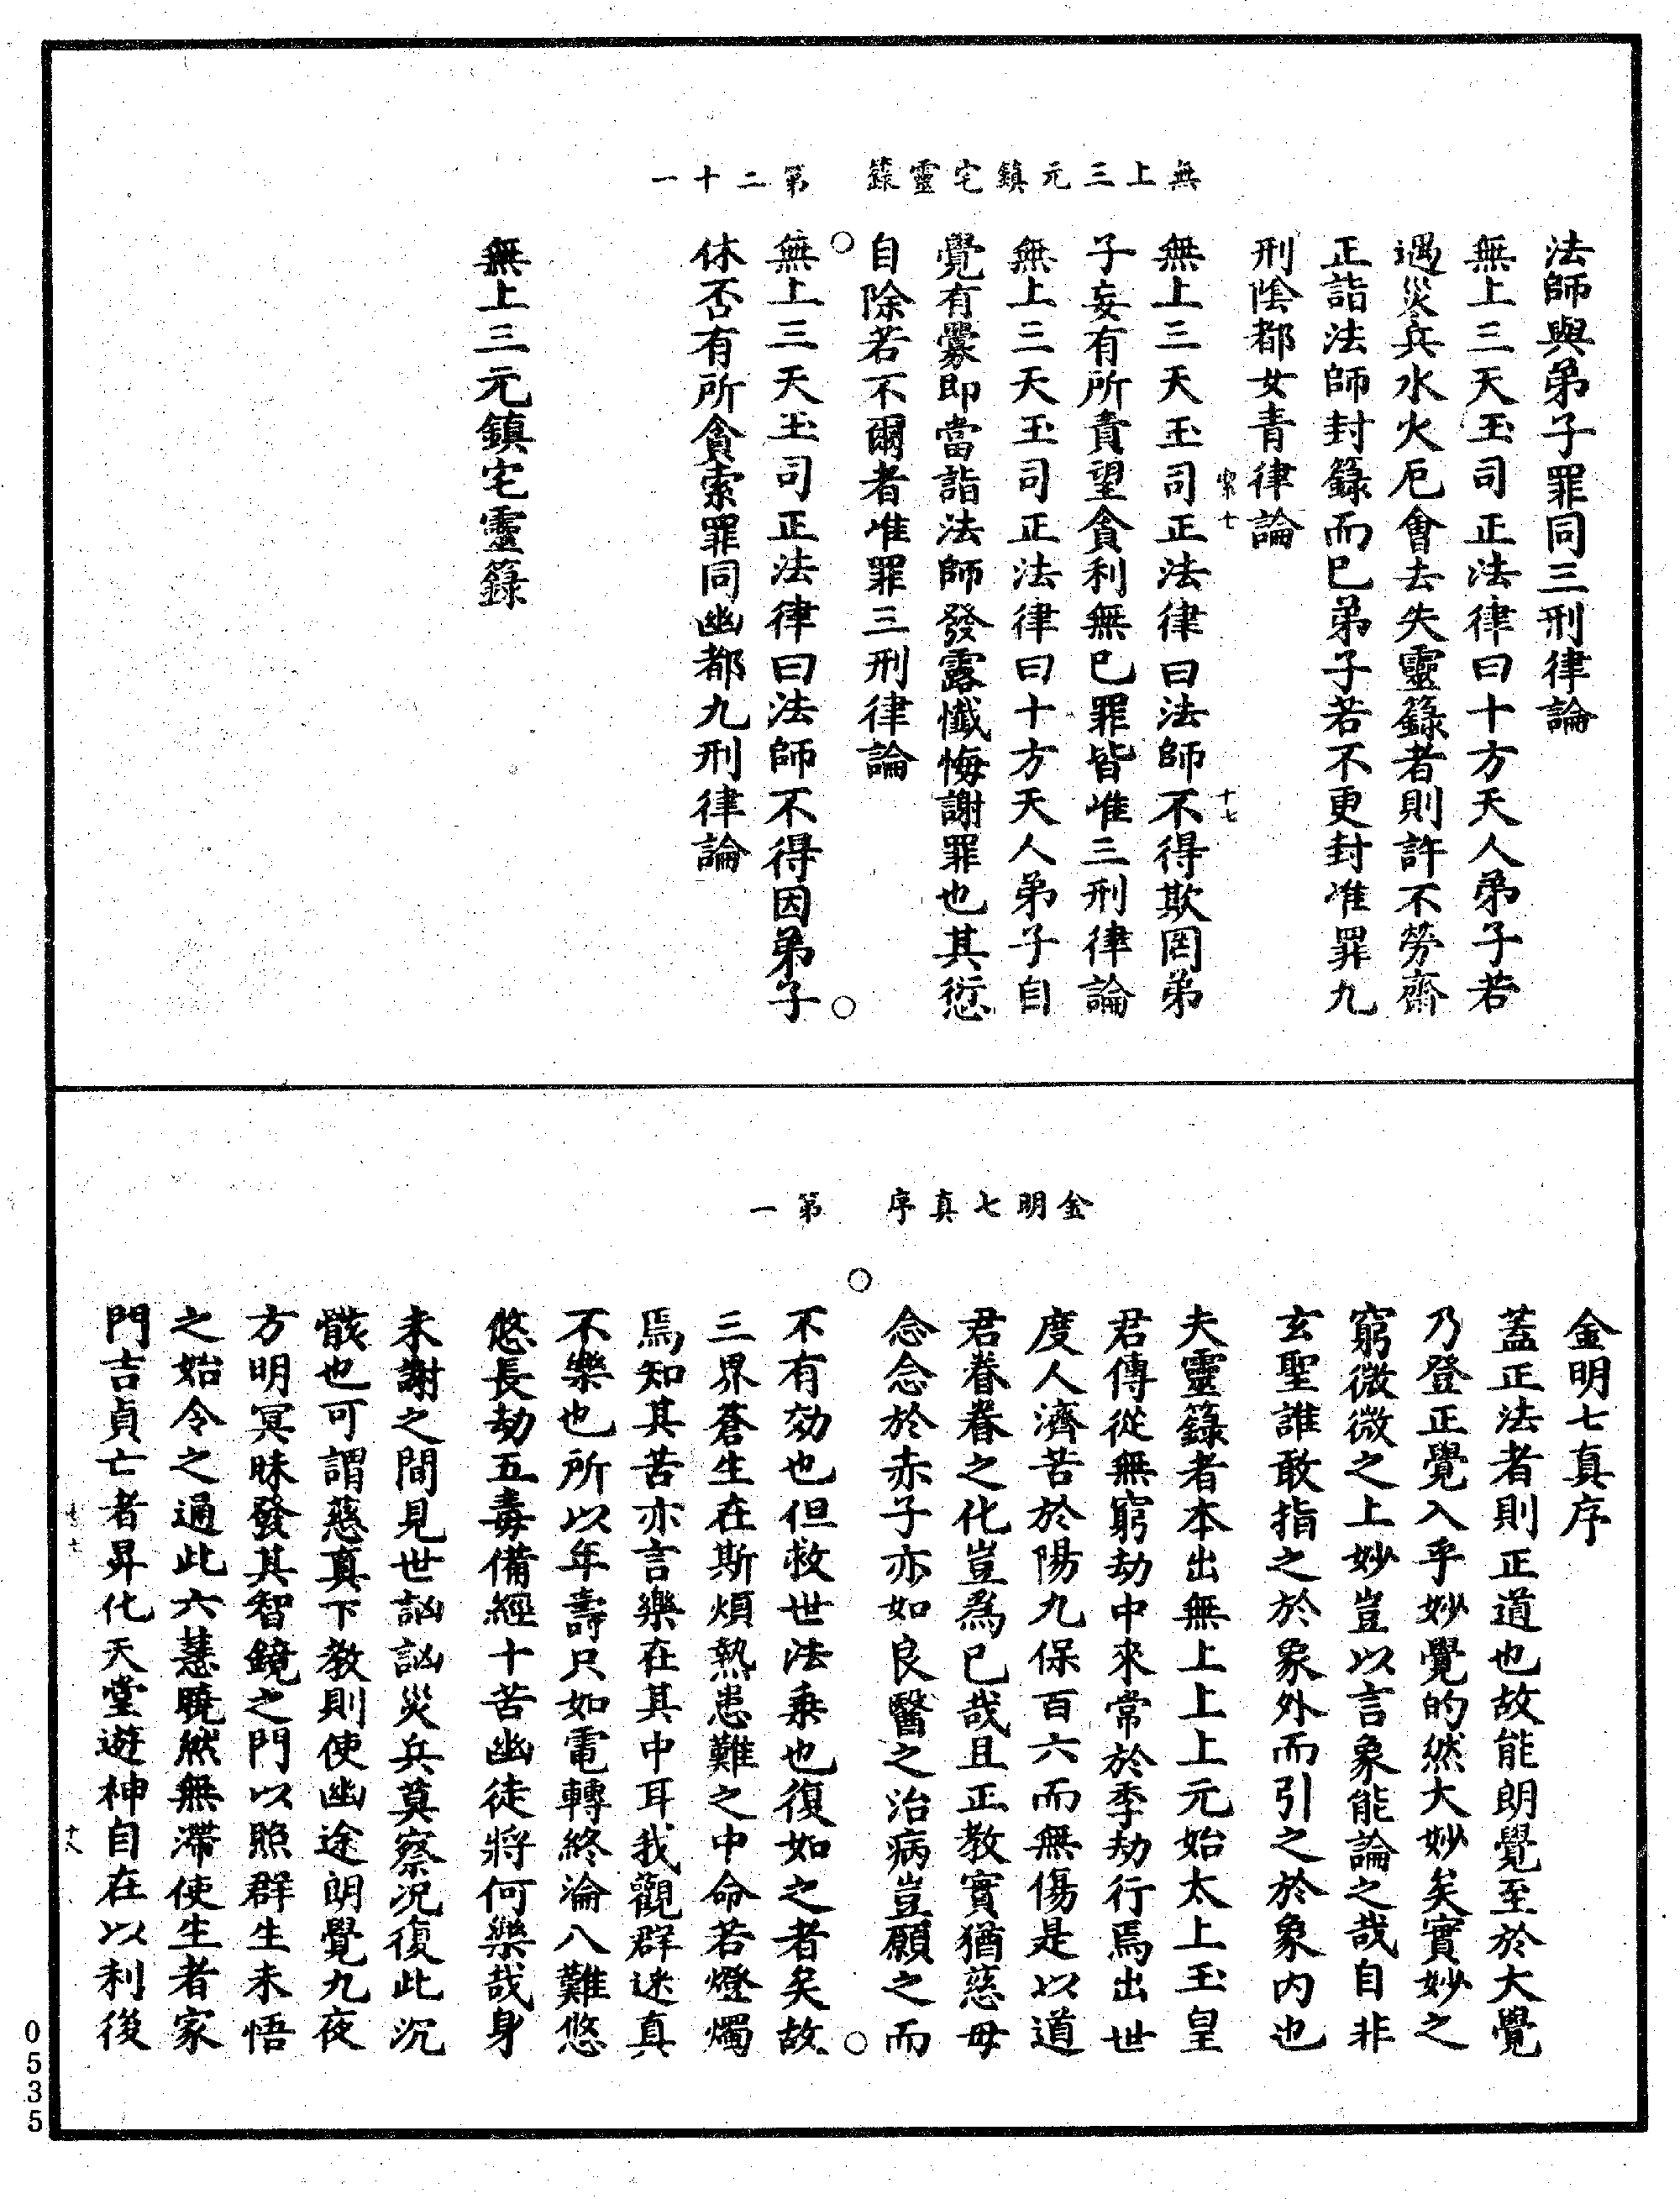 無上三元鎮宅靈籙　第二十一
法師與弟子罪同三刑律論
無上三天玉司正法律曰十方天人弟子若
遇災兵水火厄會去失靈籙者則許不勞齋
正詣法師封籙而已弟子若不更封准罪九
刑陰都女青律論
十七
無上三天玉司正法律曰法師不得欺罔弟
子妄有所責望貪利無已罪皆准三刑律論
無上三天玉司正法律曰十方天人弟子自
覺有釁即當詣法師發露懺悔謝罪也其愆
自除若不爾者准罪三刑律論
無上三天玉司正法律曰法師不得因弟子
休否有所貪索罪同幽都九刑律論
無上三元鎮宅靈籙
金明七真序　第一
金明七真序
蓋正法者則正道也故能朗覺至於大覺
乃登正覺入乎妙覺的然大妙矣實妙之
窮微微之上妙豈以言象能論之哉自非
玄聖誰敢指之於象外而引之於象內也
夫靈籙者本出無上上上元始太上玉皇
君傳從無窮劫中來常於季劫行焉出世
度人濟苦於陽九保百六而無傷是以道
君眷眷之化豈為已哉且正教實猶慈母
念念於赤子亦如良醫之治病豈願之而
不有効也但救世法乗也復如之者矣故
三界蒼生在斯煩熱患難之中命若燈燭
焉知其苦亦言樂在其中耳我觀群迷真
不樂也所以年壽只如電轉終淪八難悠
悠長劫五毒備經十苦幽徒將何樂哉身
未謝之間見世訩訩災兵莫察況復此沉
骸也可謂慈真下教則使幽途朗覺九夜
方明冥昧發其智鏡之門以照群生未悟
之始令之通此六慧曉然無滯使生者家
門吉貞亡者昇化天堂遊神自在以利後
十八
0535